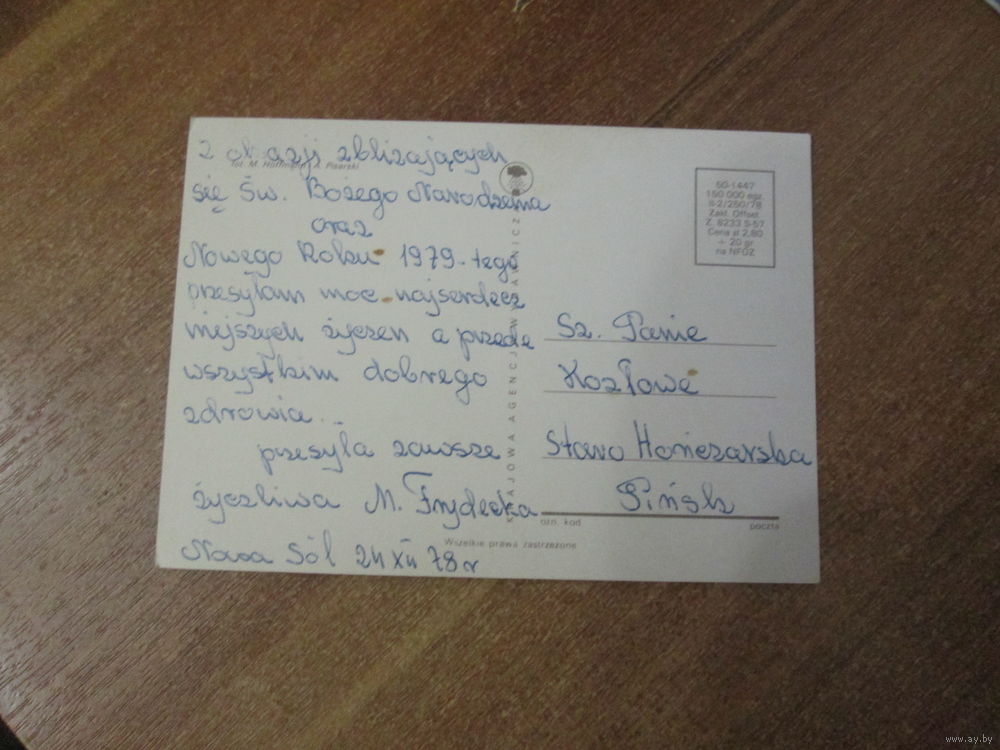 Z okazji zbliżających
fot. M. Hoffman, A. Pisarski
się Św. Bożego Narodzenia
oraz
Nowego Roku 1979-tego
przesyłam moc najserdecz
niejszych życzeń a przede
wszystkim dobrego
zdrowia.
przesyła zawsze
życzliwa M. Frydecka
Nowa Sól 24 XII 78 r
KRAJOWA AGENCJA WYDAWNICZA
60-1447
150 000 egz.
II-2/250/78
Zakł. Offset.
Z. 8233 S-57
Cena zł 2,80
+ 20 gr
na NFOZ
Sz. Panie
Kozłowe
Staro Hończarska
Pińsk
ozn. kod
poczta
Wszelkie prawa zastrzeżone
www.ay.by